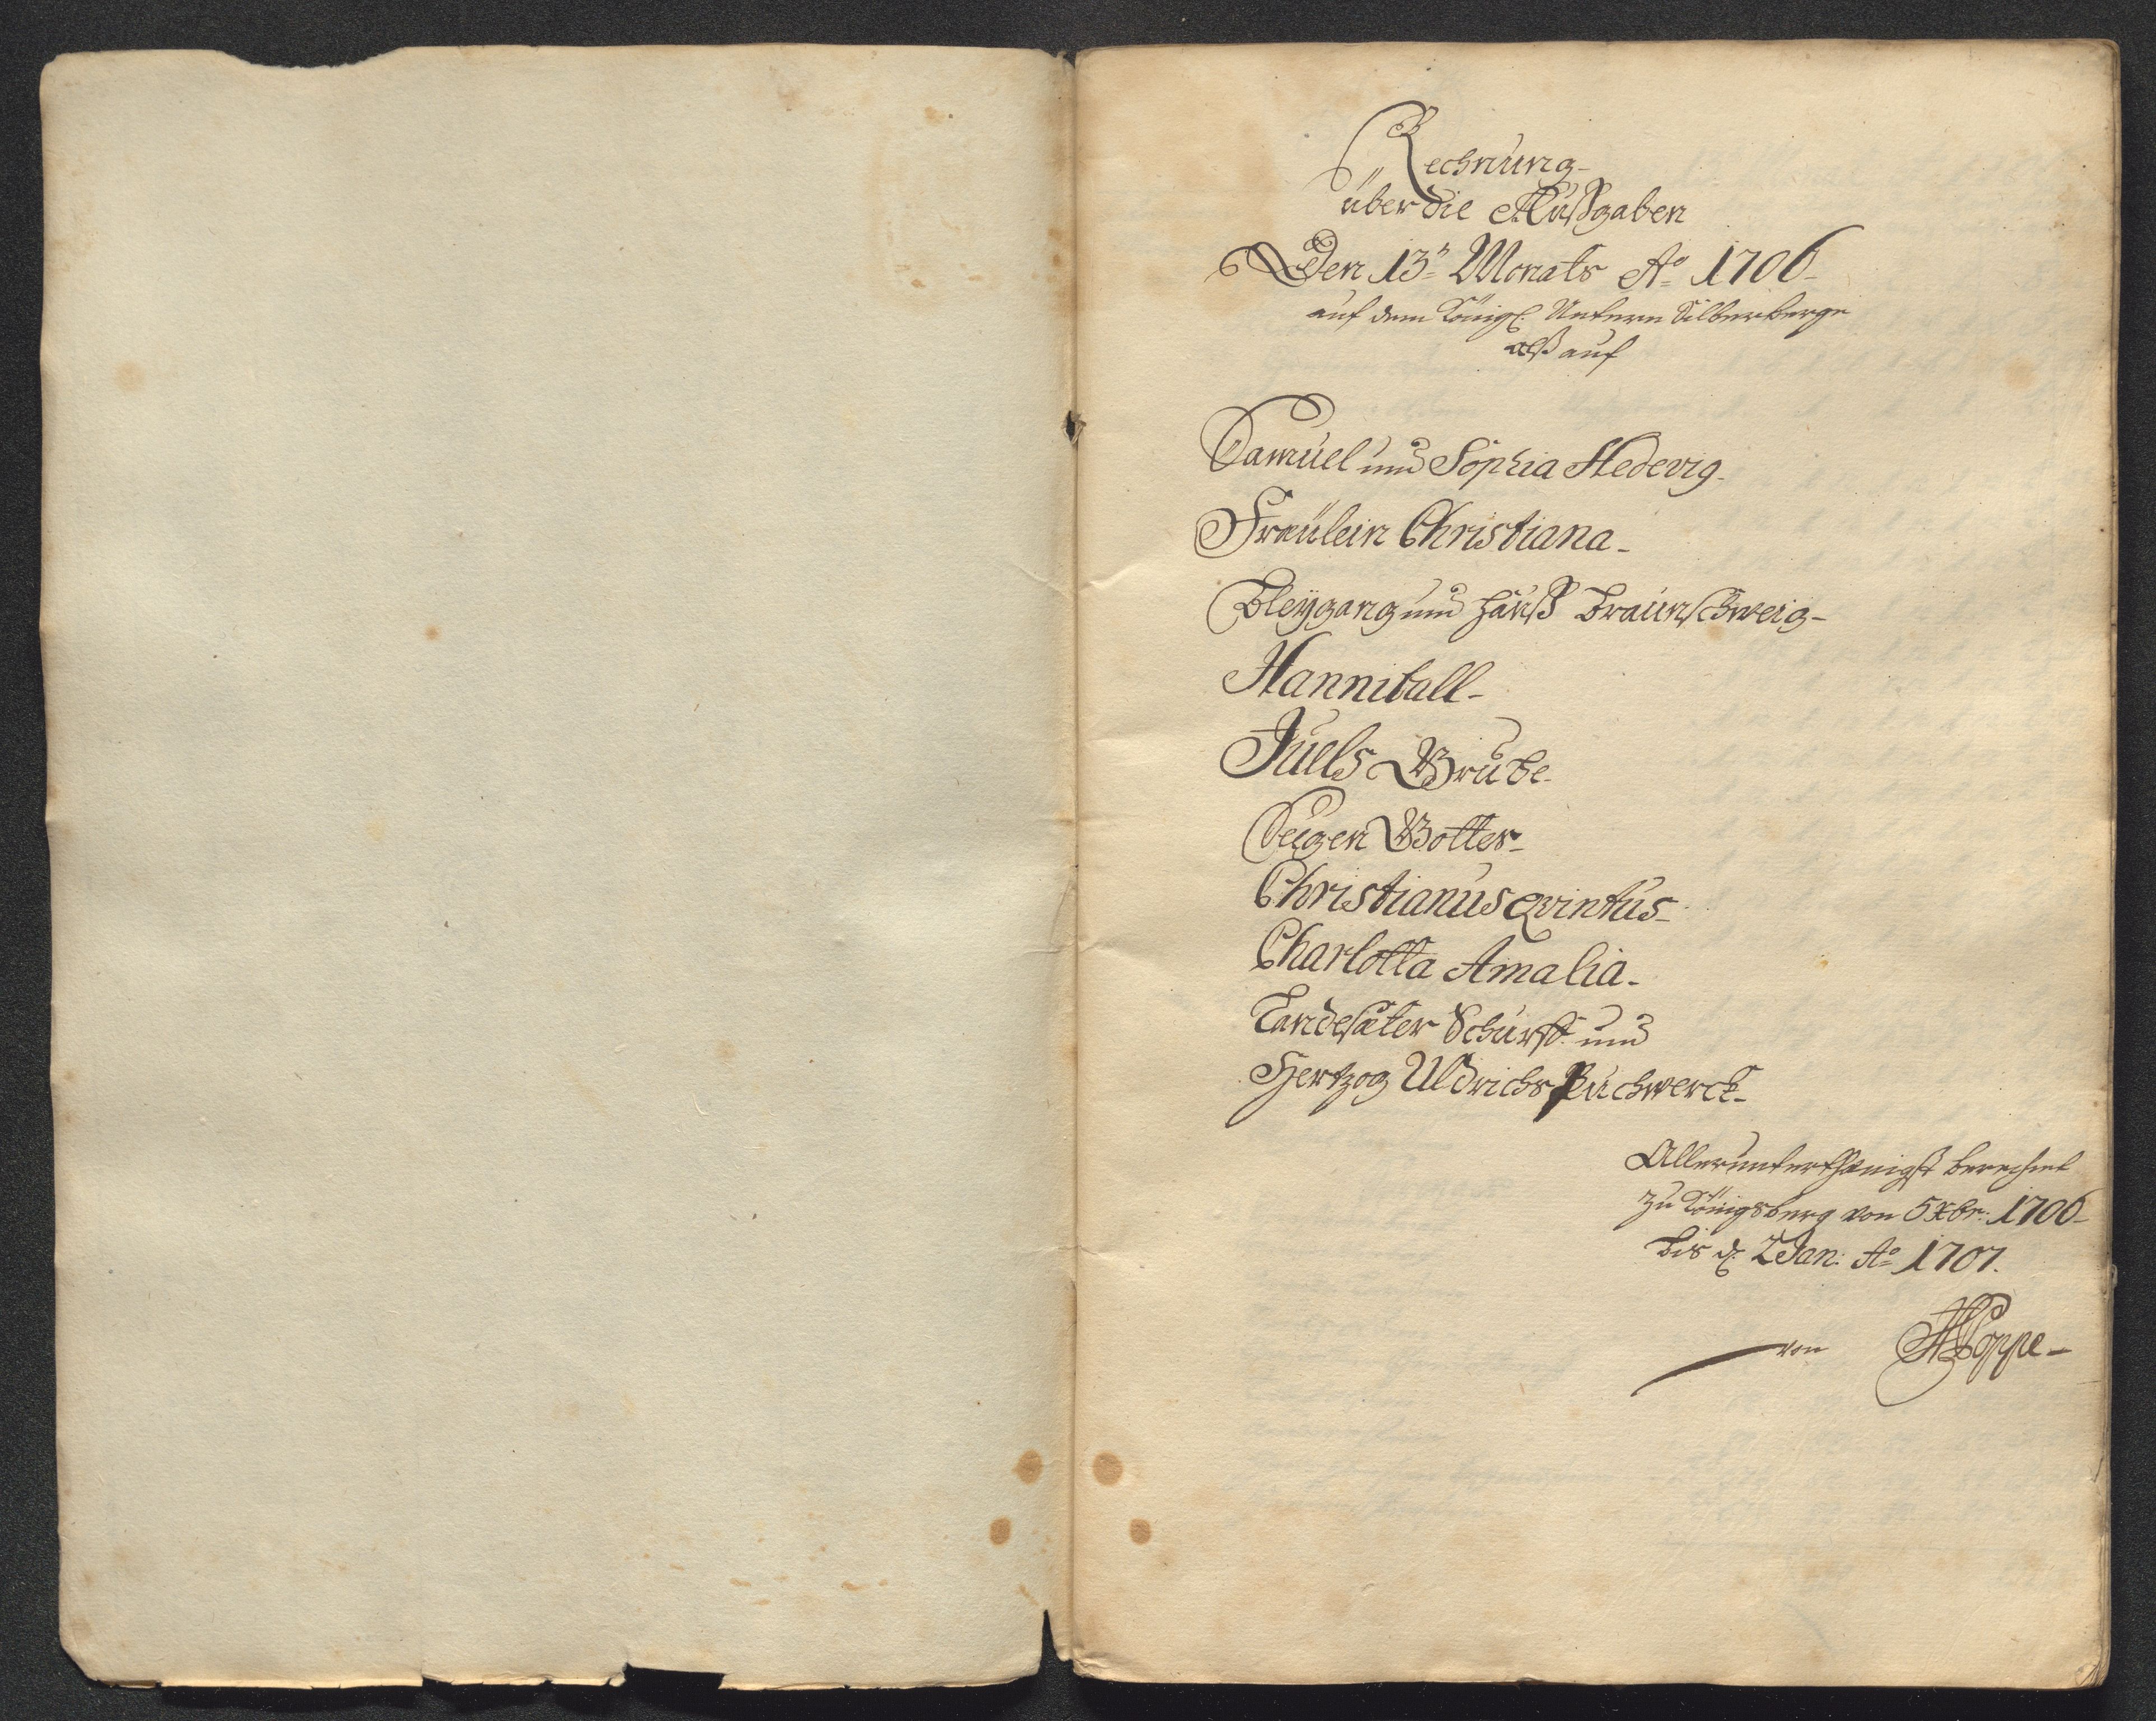 Rechnung
über die Außgaben
Den 13ⁿ Monats Aº 1706
auf dem Königl: Untern Silberberge
alß auf
Samuel und Sophia Hedevig
Fraülein Christiana
Bleygang und Hauß Braunschweig
Hanniball
Juels Grube
Segen Gottes
Christianus Qvintus
Charlotta Amalia
Landesater Schurff und
Hertzog Uldrichs Puchwerck
Allerunterthänigst berechnet
zu Königsberg von 5 Xbr: 1706
bis d: 2 Jan: Aº 1707.
von Poppe